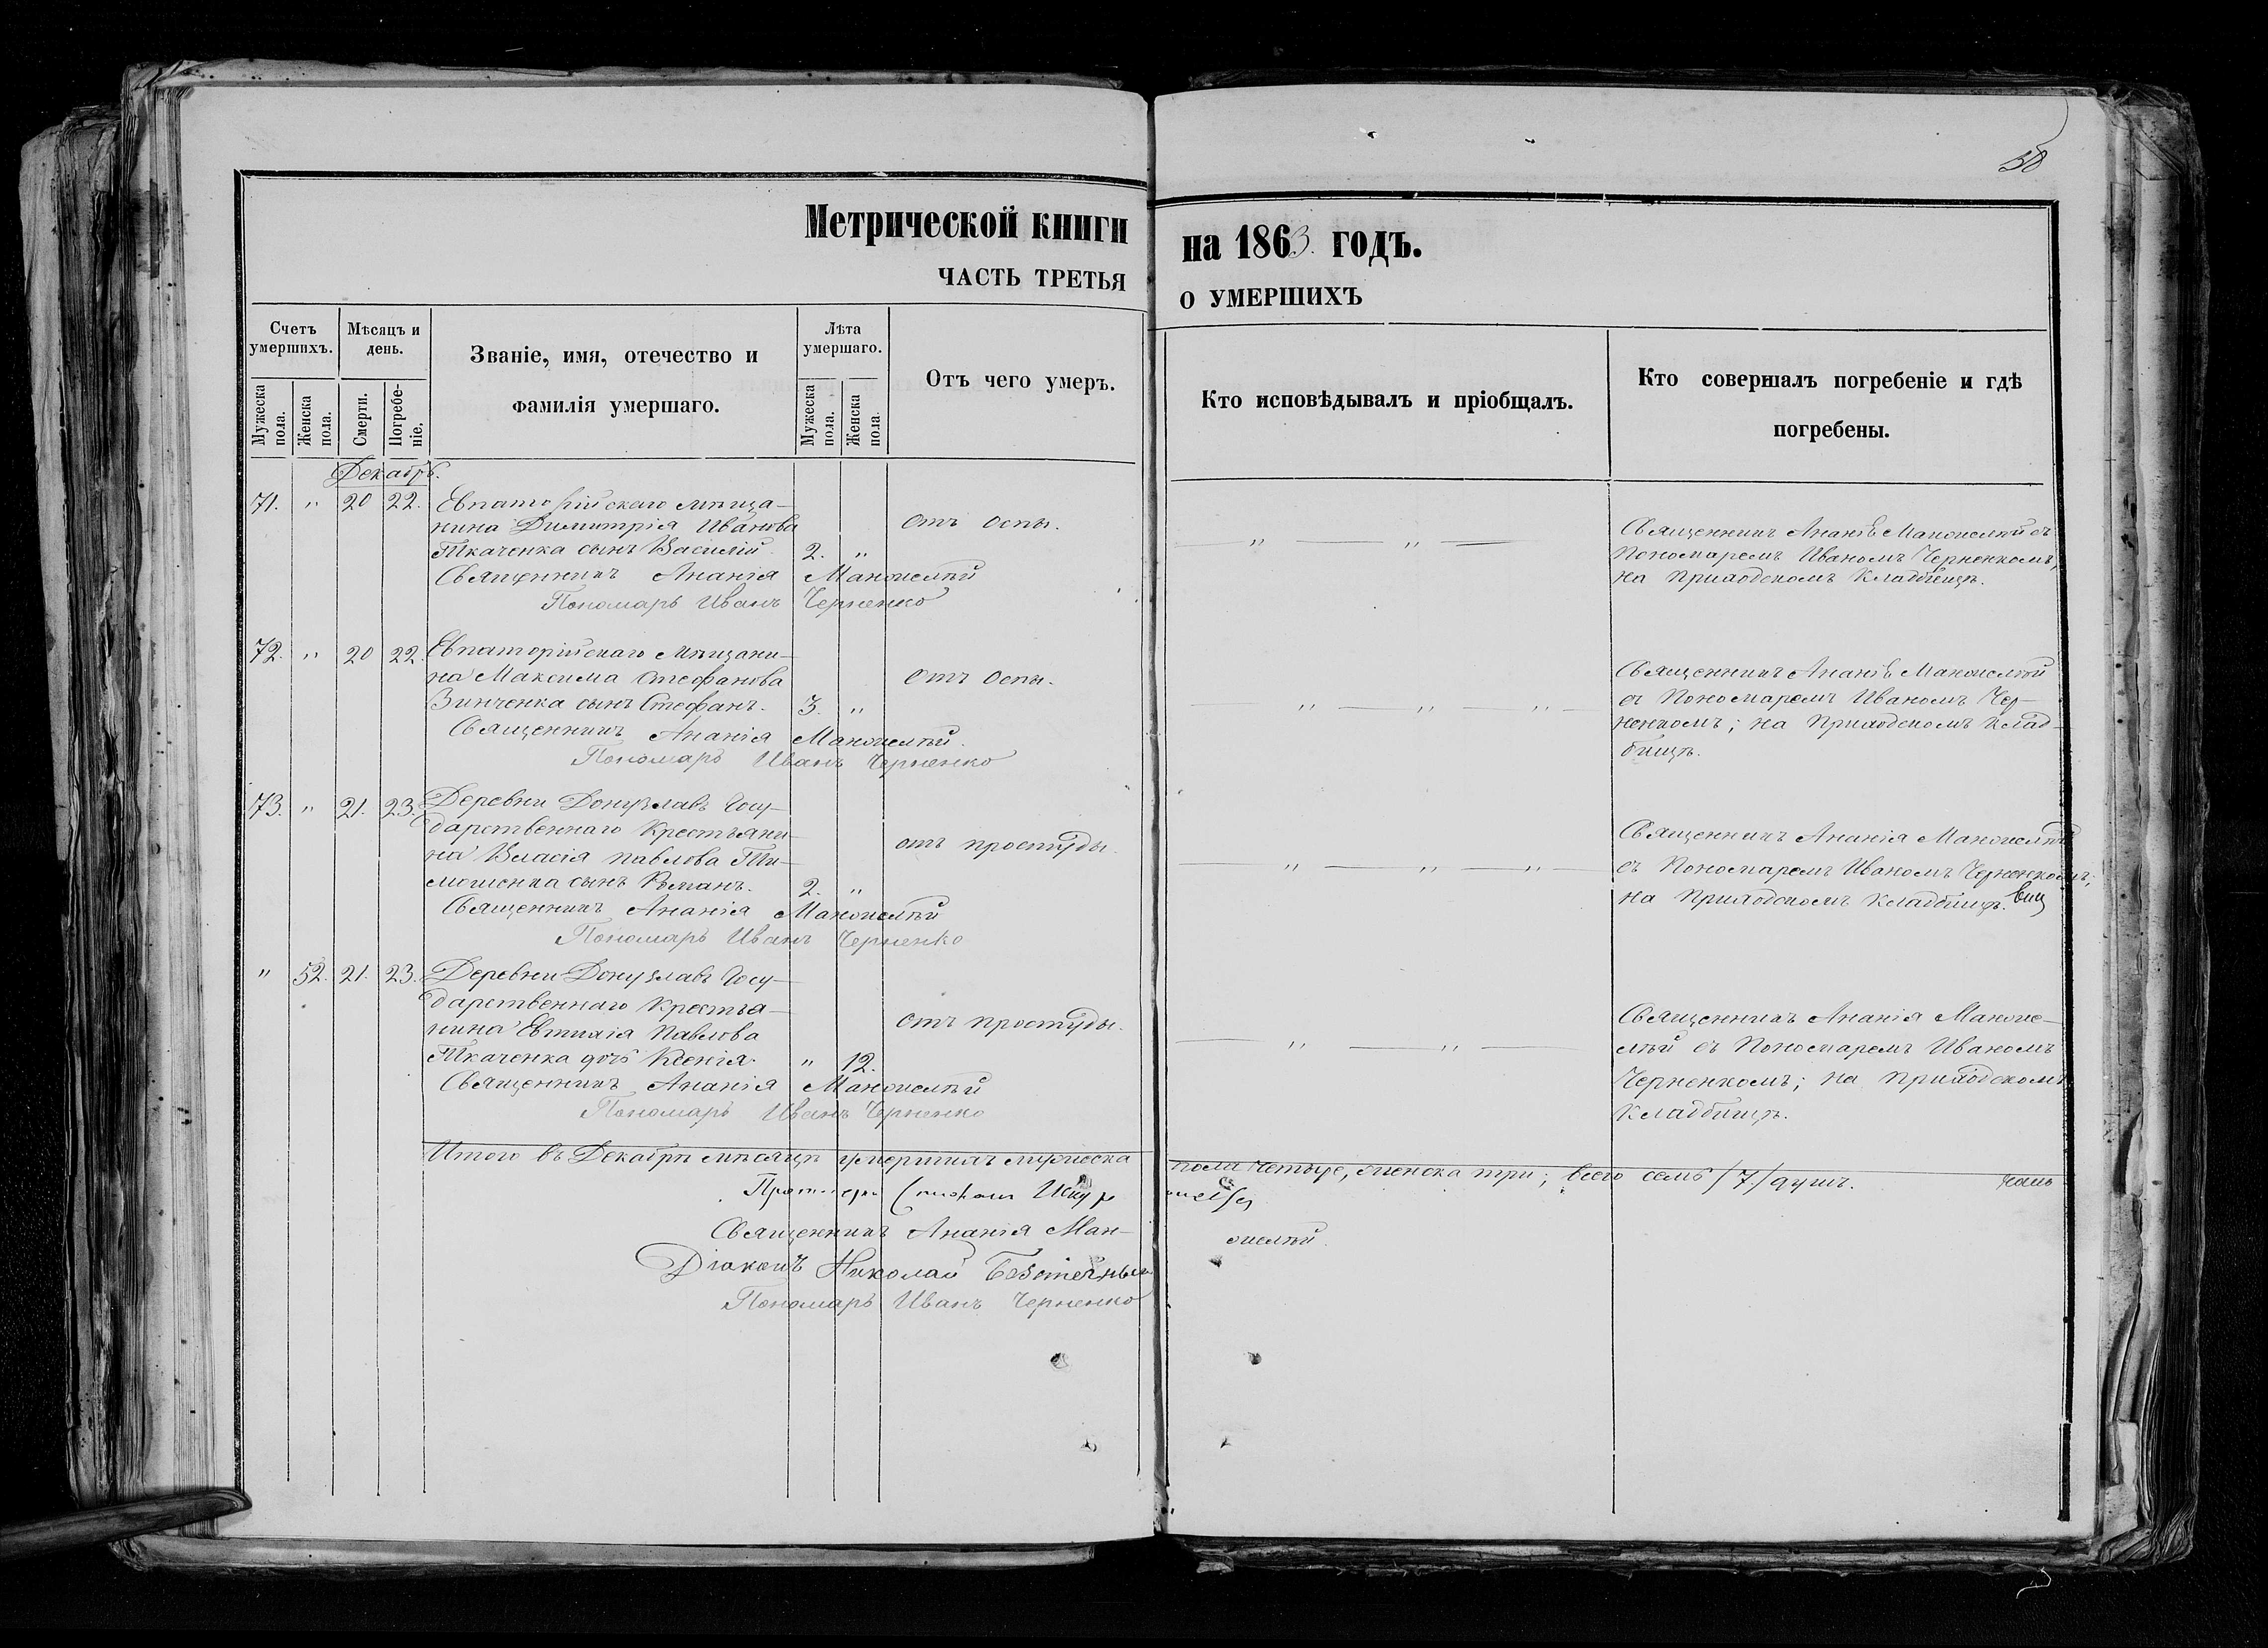 58
Метрической книги на 1863. годъ.
ЧАСТЬ ТРЕТЬЯ О УМЕРШИХЪ
Счетъ умершихъ.
Мѣсяцъ и день.
Званіе, имя, отечество и фамилія умершаго.
Лѣта умершаго.
Отъ чего умеръ.
Кто исповѣдывалъ и пріобщалъ.
Кто совершалъ погребеніе и гдѣ погребены.
Мужеска пола.
Женска пола.
Смерти.
Погребе-
ніе.
Мужеска пола.
Женска пола.
Декабрь.
71. " 20 22. Евпаторійскаго мѣща-
нина Димитрія Иванова
Ткаченка сынъ Василій. 2. "
отъ оспы.
" "
Священникъ Ананія съ
Пономаремъ Иваномъ Черненкомъ,
на приходскомъ кладбищѣ.
Священникъ Ананія
Пономарь Иванъ Черненко
72. " 20 22. Евпаторійскаго мѣщани-
на Максима Стефанова
Зинченка сынъ Стефанъ. 3. "
отъ оспы.
" " "
Священникъ Ананія
съ Пономаремъ Иваномъ Чер-
ненкомъ; на приходскомъ клад-
бищѣ.
Священникъ Ананія
Пономарь Иванъ Черненко
73. " 21. 23. Деревни Донузлавъ Госу-
дарственнаго крестьяни-
на Власія Павлова Ти-
мошенка сынъ Романъ. 2. "
отъ простуды.
" " "
Священникъ Ананія
съ Пономаремъ Иваномъ Черненкомъ;
на приходскомъ кладбищѣ.
Священникъ Ананія
Пономарь Иванъ Черненко
" 52. 21. 23. Деревни Донузлавъ Госу-
дарственнаго крестья-
нина Евтихія Павлова
Ткаченка дочь Ксенія. " 12.
отъ простуды.
" "
Священникъ Ананія
съ Пономаремъ Иваномъ
Черненкомъ; на приходскомъ
кладбищѣ.
Священникъ Ананія
Пономарь Иванъ Черненко
Итого въ Декабрѣ мѣсяцѣ умершихъ мужеска пола четыре, женска три; всего семь /7./ душъ.
Священникъ Ананія
Діаконъ Николай
Пономарь Иванъ Черненко